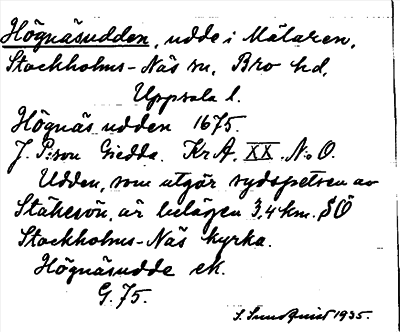 Högnäsudden, udde i Mälaren,
Stockholms-Näs sn, Bro hd,
Uppsala l.
Högnäs udden 1675.
J. P:son Gedda. KrA. XX. N:o O.
Udden, som utgör sydspetsen av
Stäkesön, är belägen 3,4 km. SÖ
Stockholms-Näs kyrka.
Högnäsudde ek.
G. 75.
S. Sundquist 1935.